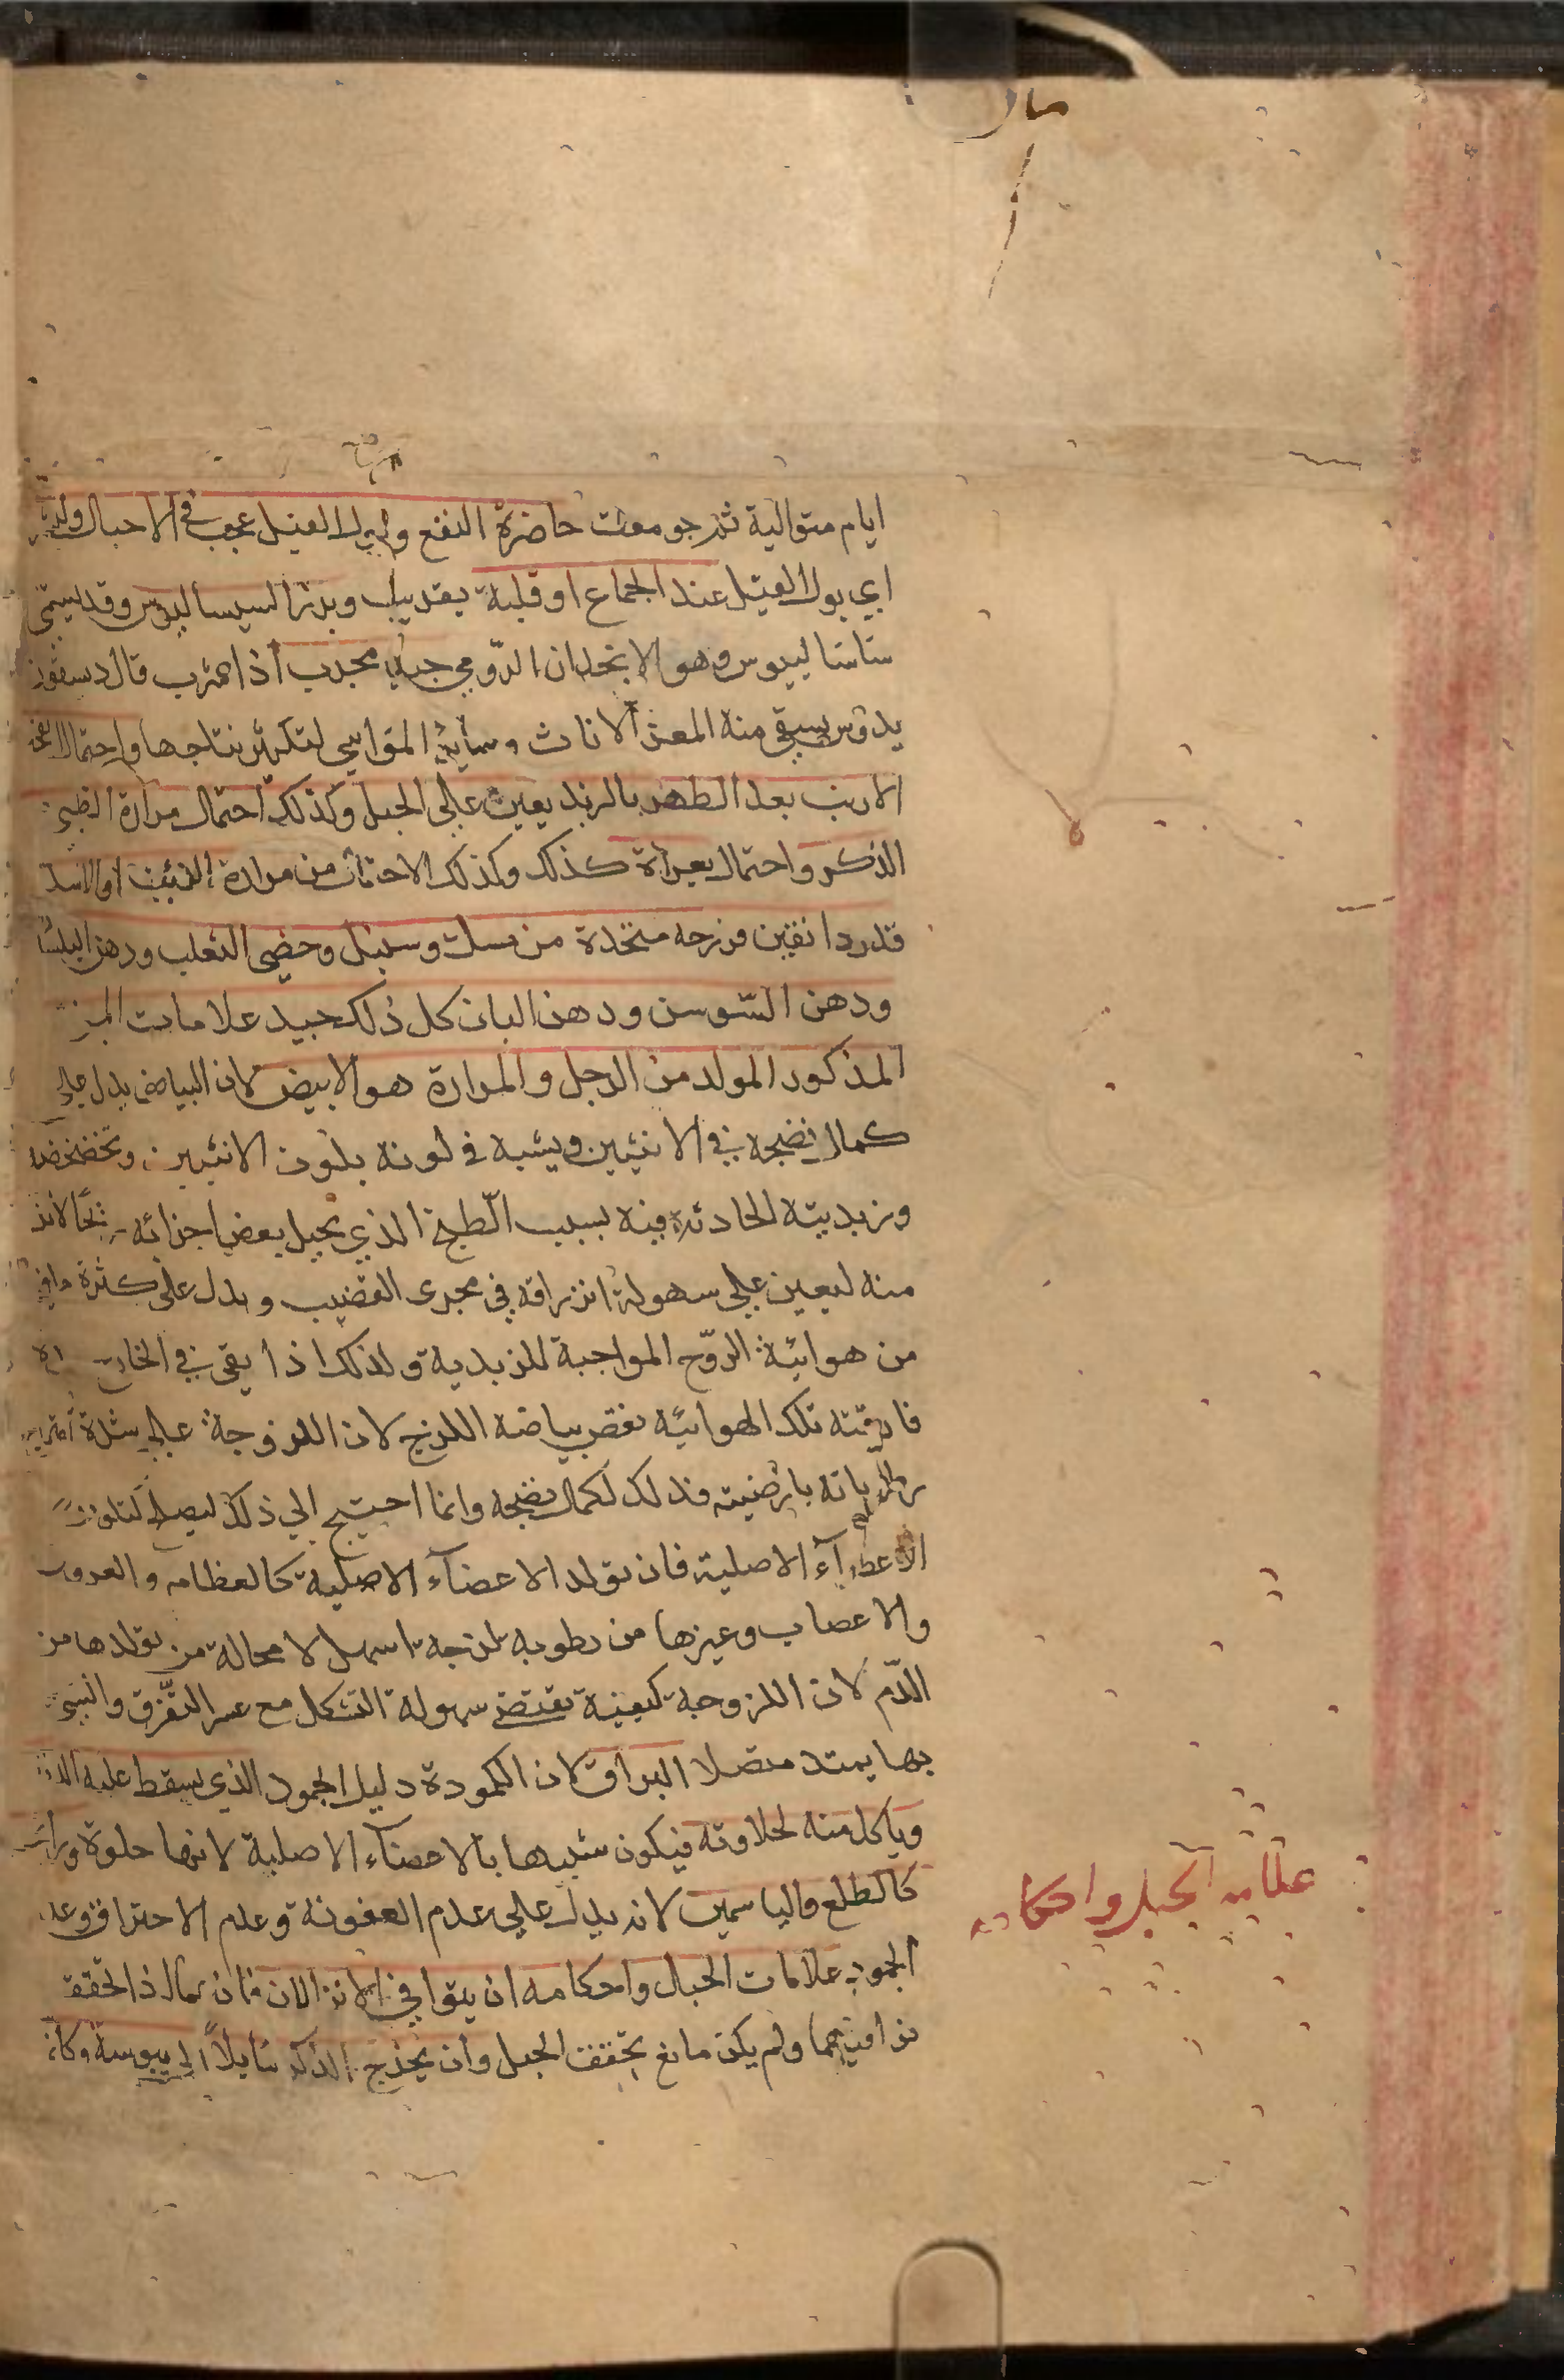 ايام متوالية ثم جومعت حاضرة النفع وبول الفيل عجيب في الاحبال
اي بول الفيل عند الجماع او قبله بقريب وبزر السيساليوس وقد يسمى
ساساليوس وهو الانجدان الرومي جبلي مجرب اذا شرب قال ديسقور
يدوس يسقى منه المعز الاناث وساير المواشي لتكثير نتاجها واحتمال انفحة
الارنب بعد الطهر بالزبد يعين علي الحبل وكذلك احتمال مرارة الظبي
الذكر واحتمال بعراة كذلك وكذلك الاحتمال من مرارة الذئب او الاسد
قدر دانقين فرزجه متخذة من مسك وسنبل وخصي الثعلب ودهن البلسان
ودهن السوسن ودهن البان كل ذلك جيد علامات المني
المذكور المولد من الرجل والمراة هو الابيض لان البياض يدل علي
كمال نضجه في الانثيين ويشبه في لونه بلون الانثيين
وزبديته الحادثة فيه بسبب الطبخ الذي يحيل بعض اجزائه ريحا لابد
منه ليعين علي سهولة انزراقه في مجرى القضيب ويدل على كثرة ما فيه
من هوائية الروح المواجبة للزبدية ولذلك اذا بقي في الخارج
فارقته تلك الهوائية نقص بياضه اللزج لان اللزوجة علي شدة
رطوباته بارضيته فذلك لكمال نضجه وانما احتيج الي ذلك ليصلح لتكون
الاعضآء الاصلية فان تولد الاعضآء الاصلية كالعظام والعروق
والاعصاب وغيرها من رطوبه لزجة اسهل لا محالة من تولدها من
الدم لان اللزوجة كيفية تقتضي سهولة التشكل مع عسر التفرق والشي
بها يمتد متصلا البراق لان الكمودة دليل الجمود الذي يسقط عليه الذباب
وياكل منه لحلاوته فيكون شبيها بالاعضآء الاصلية لانها حلوة ورايحته
كالطلع والياسمين لانه يدل علي عدم العفونة وعدم الاحتراق وعدم
الجمود علامات الحبال واحكامه ان يتوافي الانزالان فان كمال
توافيهما ولم يكن مانع تحقق الحبل وان يخرج الذكر مايلا الي يبوسة وكانه
علامه الحبل واحكامه